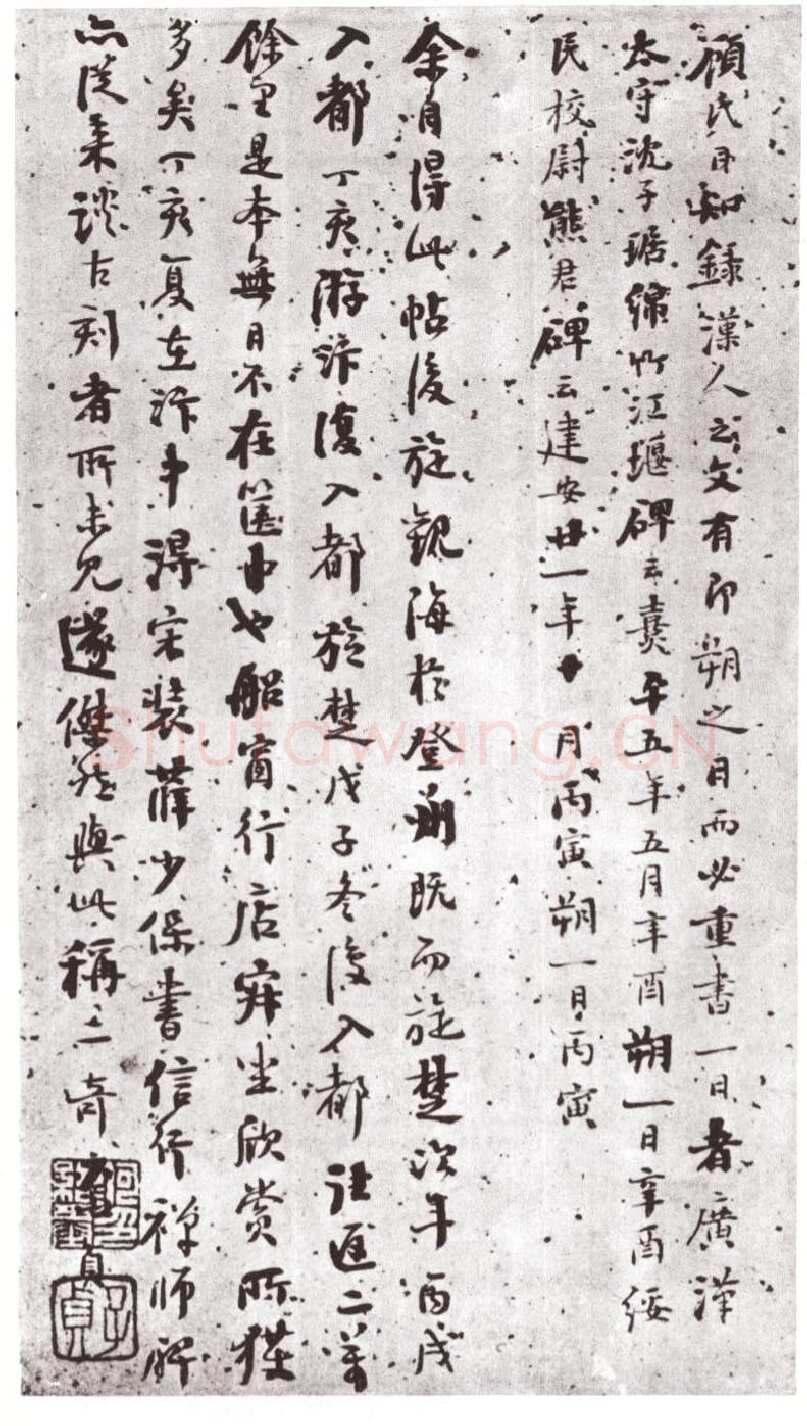 顧氏日知錄漢人之文有即朔之日而必重書一日者廣漢
太守沈子琚綿竹江堰碑云熹平五年五月辛酉朔一日辛酉綏
民校尉熊君碑云建安廿一年十月丙寅朔一日丙寅
余自得此帖後旋觀海於登州既而旋楚次年丙戌
入都丁亥游汴復入都旋楚戊子冬復入都往返二萬
餘里是本無日不在篋中也船窗行店寂坐欣賞所獲
多矣丁亥复在汴中得宋裝薛少保書信行禪師碑
亦從來談古刻者所未見遂傑然與此稱二奇
子貞
Shufawang.CN